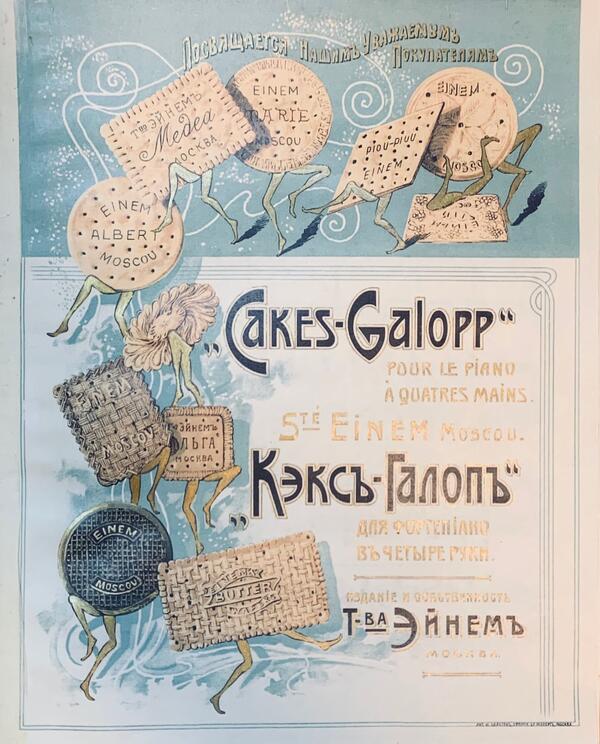 Посвящается Нашимъ Уважаемымъ
Покупателямъ
Тво ЭЙНЕМЪ
Medea
МОСКВА
EINEM
MARIE
MOSCOU
EINEM
PIOU-PIOU
EINEM
EINEM
ALBERT
MOSCOU
„Cakes-Galopp“
POUR LE PIANO
À QUATRES MAINS.
STÉ EINEM MOSCOU.
EINEM
MOSCOU
Тво ЭЙНЕМЪ
ОЛЬГА
МОСКВА
„Кэксъ-Галопъ“
ДЛЯ ФОРТЕПІАНО
ВЪ ЧЕТЫРЕ РУКИ.
EINEM
MOSCOU
BUTTER
ИЗДАНІЕ И СОБСТВЕННОСТЬ
Т-ВА ЭЙНЕМЪ
МОСКВА.